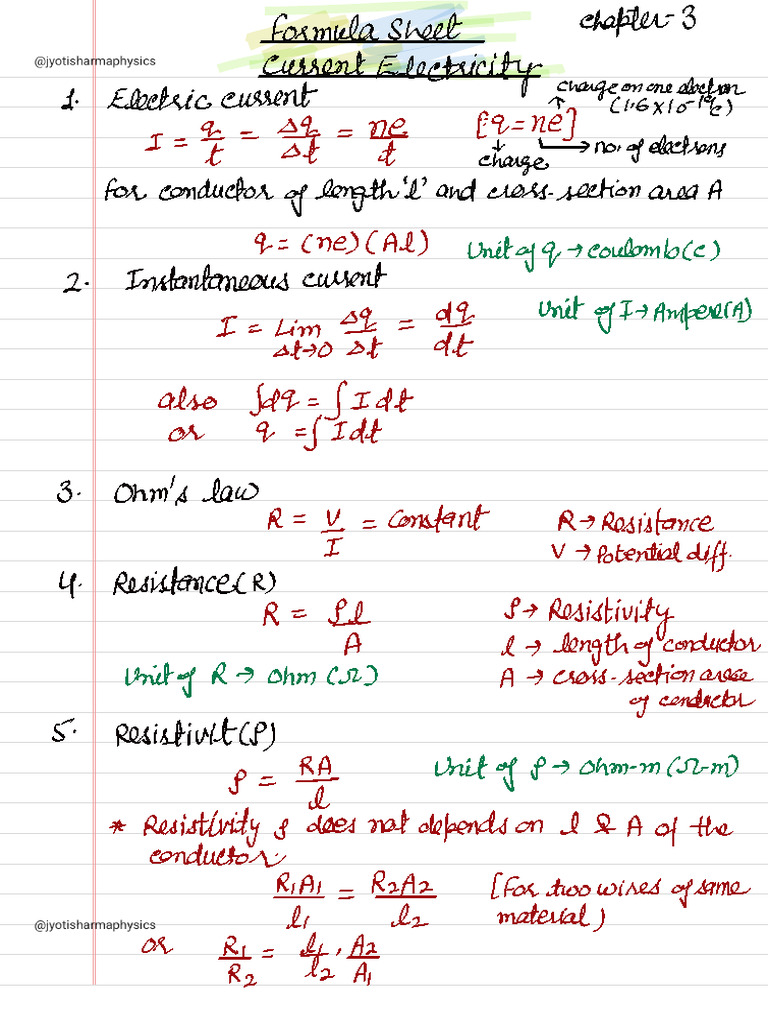 Formula Sheet
Chapter-3
@jyotisharmaphysics
Current Electricity
1. Electric current
charge on one electron
(1.6 × 10⁻¹⁹c)
I = q/t = Δq/Δt = ne/t [q = ne]
charge → no. of electrons
for conductor of length 'l' and cross-section area A
q = (ne)(Al) Unit of q → coulomb(c)
2. Instantaneous current
I = Lim Δt→0 Δq/Δt = dq/dt Unit of I → Ampere(A)
also ∫dq = ∫I dt
or q = ∫I dt
3. Ohm's law
R = V/I = Constant R → Resistance
V → Potential diff.
4. Resistance(R)
R = ρl/A ρ → Resistivity
l → length of conductor
Unit of R → Ohm (Ω) A → cross-section area
of conductor
5. Resistivit(ρ)
ρ = RA/l Unit of ρ → Ohm-m(Ω-m)
* Resistivity ρ does not depends on l & A of the
conductor.
R₁A₁/l₁ = R₂A₂/l₂ [For two wires of same
material)
@jyotisharmaphysics
or R₁/R₂ = l₁/l₂ . A₂/A₁